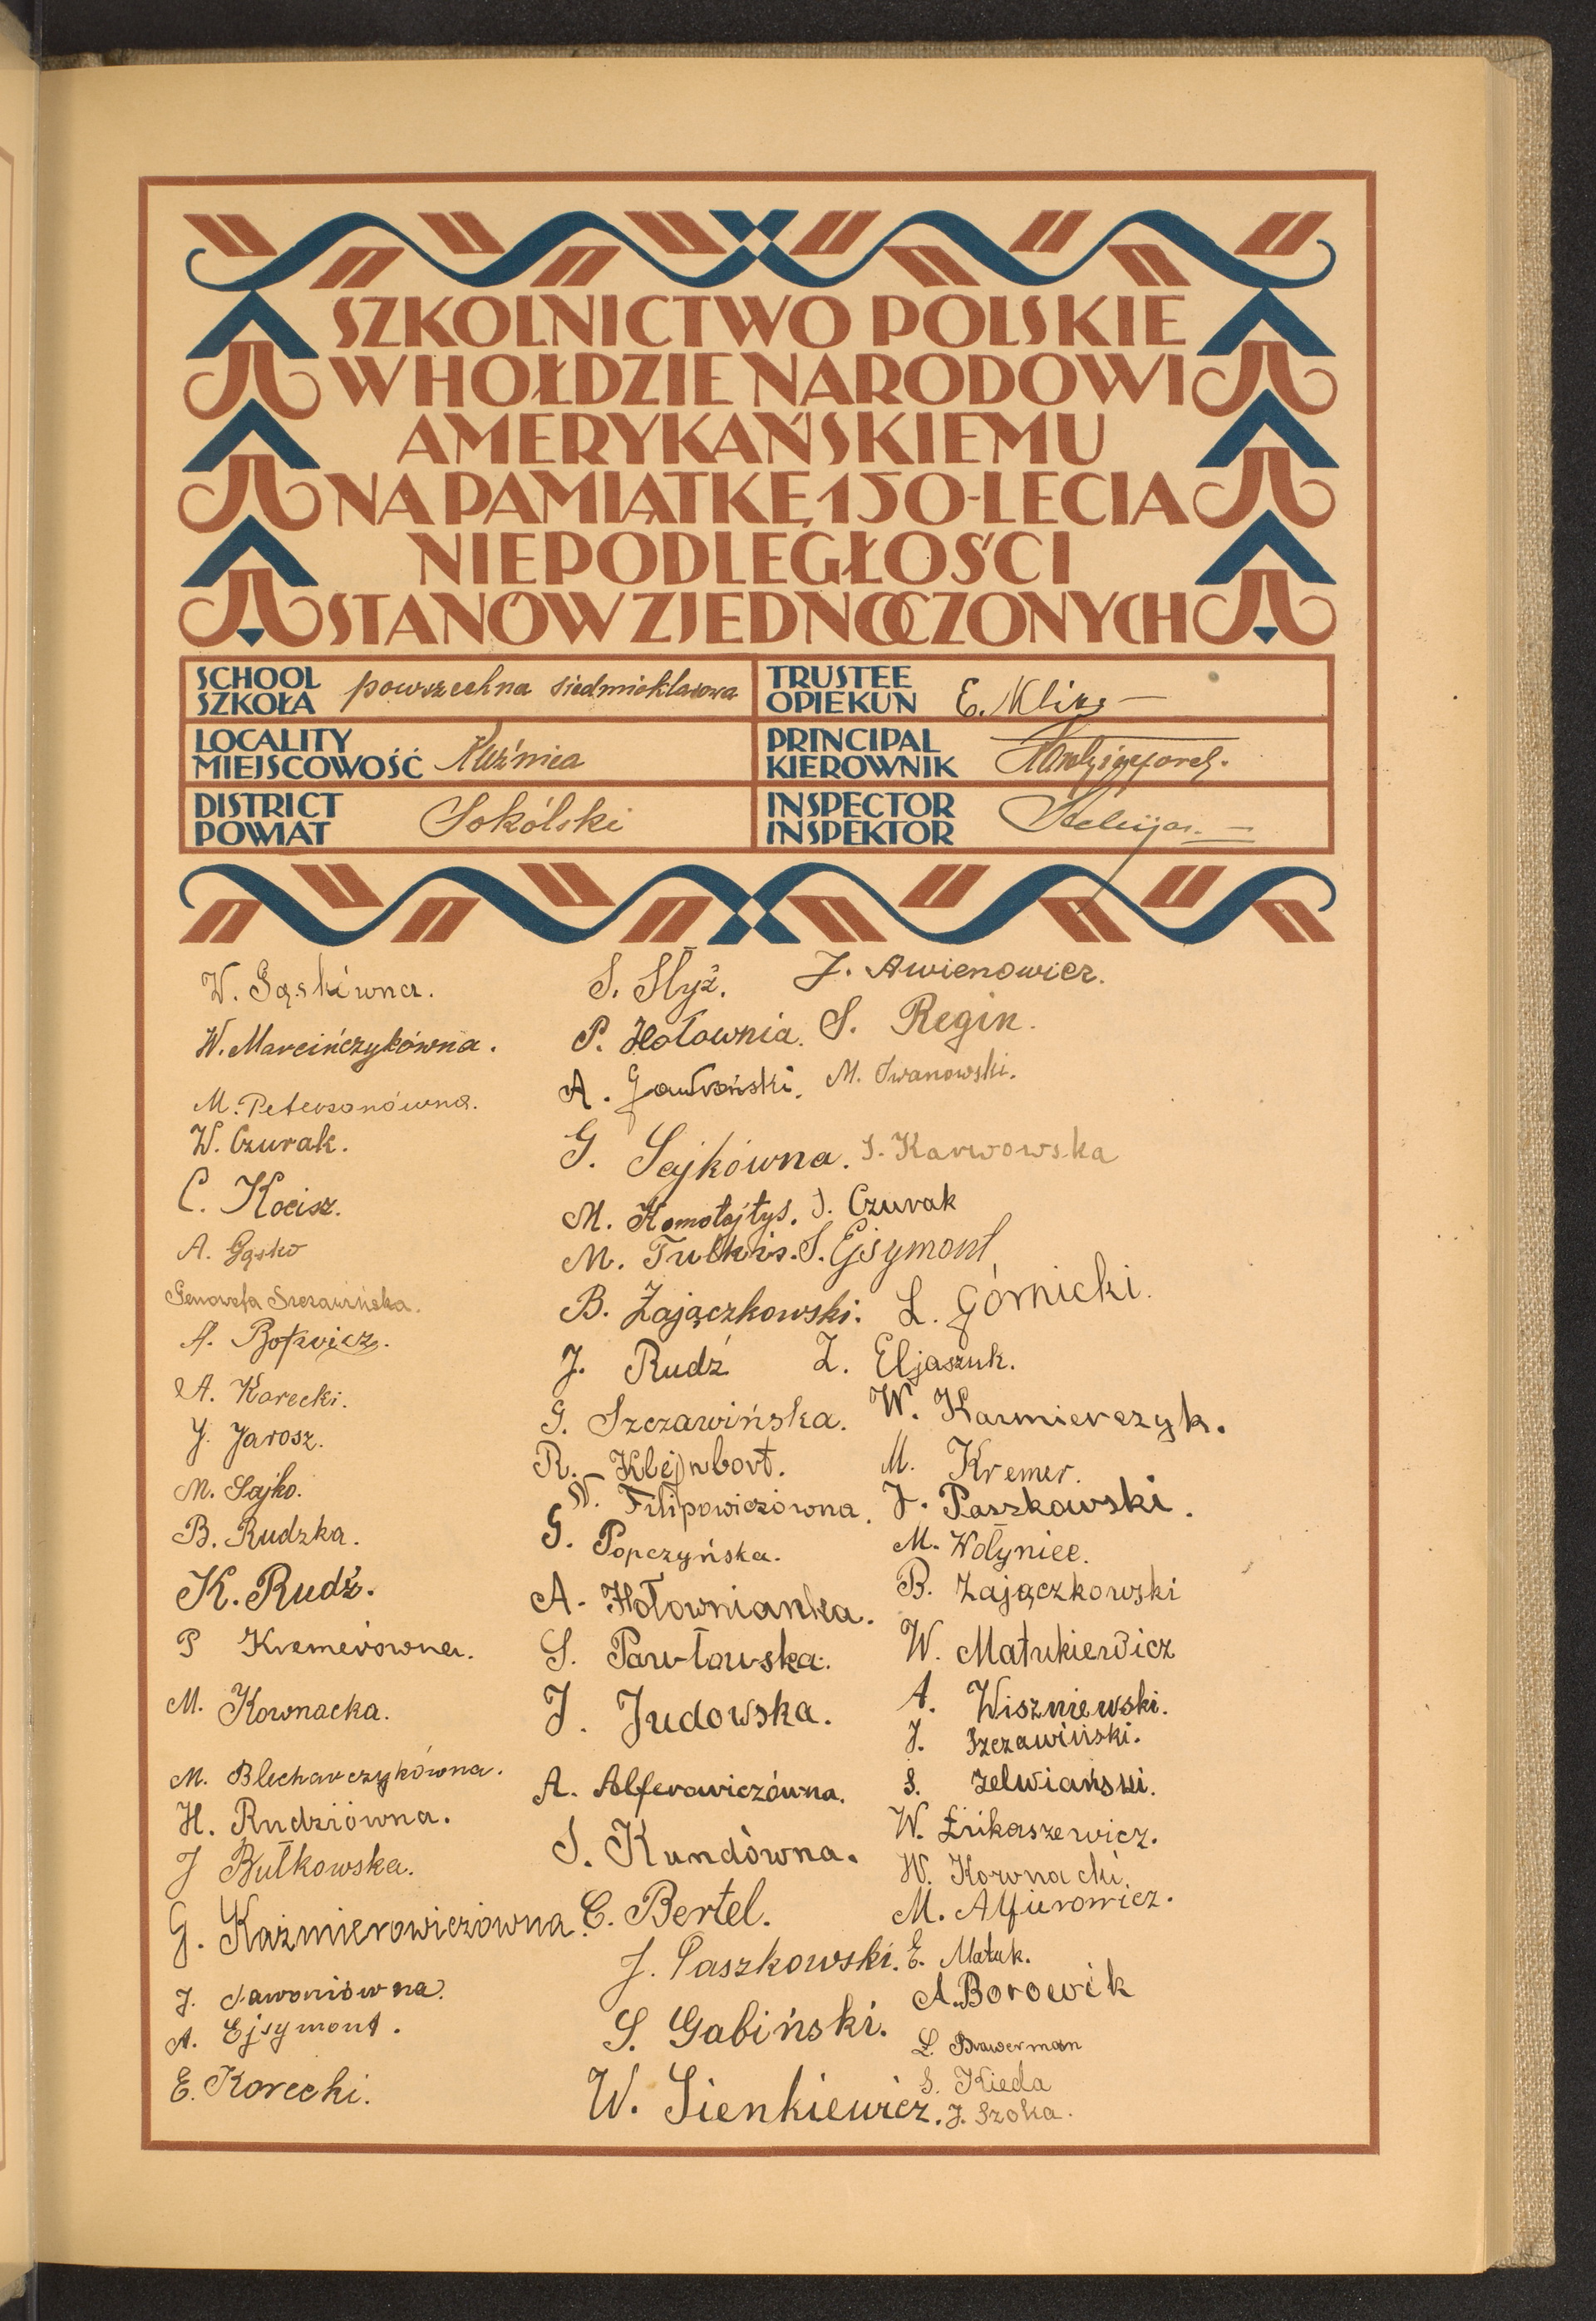 SZKOLNICTWO POLSKIE
W HOŁDZIE NARODOWI
AMERYKAŃSKIEMU
NA PAMIĄTKĘ 150-LECIA
NIEPODLEGŁOŚCI
STANÓW ZJEDNOCZONYCH
SCHOOL
SZKOŁA powszechna siedmioklasowa
TRUSTEE
OPIEKUN E.
LOCALITY
MIEJSCOWOŚĆ Kuźnica
PRINCIPAL
KIEROWNIK
DISTRICT
POWIAT Sokólski
INSPECTOR
INSPEKTOR
W. Gąskówna.
W. Marcińczykówna.
M. Petersonówna.
W. Czurak.
C. Kocisz.
A. Gąsko
Genowefa Szczawińska.
A.
A. Korecki.
J. Jarosz.
M. Sajko.
B. Rudzka.
K. Rudź.
P Kremerówna.
M. Kownacka.
M. Blecharczykówna.
H. Rudziówna.
J Bułkowska.
G. Kaźmierowiczówna.
J. Sawoniówna.
A. Ejsymont.
E. Korecki.
S. Słyż.
P. Hołownia.
A. Gawroński.
G. Sajkówna.
M. Komołajtys.
M. Tulkis.
B. Zajączkowski.
J. Rudź
G. Szczawińska.
R. Klejnbort.
W. Filipowiczówna.
G. Popczyńska.
A. Hołownianka.
S. Pawłowska.
J. Judowska.
A. Alferowiczówna.
S. Kundówna.
C. Bertel.
J. Paszkowski.
S. Gabiński.
W. Sienkiewicz.
J. Awienowicz.
S. Regin.
M. Iwanowski.
S. Karwowska
S. Czurak
S. Ejsymont
L. Górnicki.
Z. Eljaszuk.
W. Kazmierczyk.
M. Kremer.
J. Paszkowski.
M. Wołyniec.
B. Zajączkowski
W. Matukiewicz
A. Wiszniewski.
J. Szczawiński.
S. Zelwiański.
W. Łukaszewicz.
W. Kownacki.
M. Alfierowicz.
E. Matuk.
A. Borowik
L. Brawerman
S. Kieda
J. Szoka.